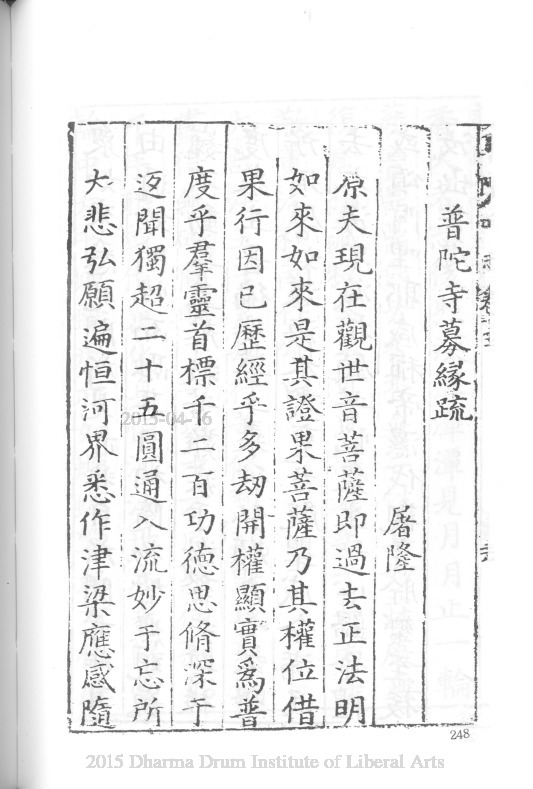 普陀寺募緣疏
屠隆
原夫現在觀世音菩薩即過去正法明
如來如來是其證果菩薩乃其權位借
果行因已歷經乎多劫開權顯實爲普
度乎羣靈首標千二百功德思脩深于
返聞獨超二十五圓通入流妙于忘所
大悲弘願遍恒河界悉作津梁應感隨
248
2015-04-16
2015 Dharma Drum Institute of Liberal Arts